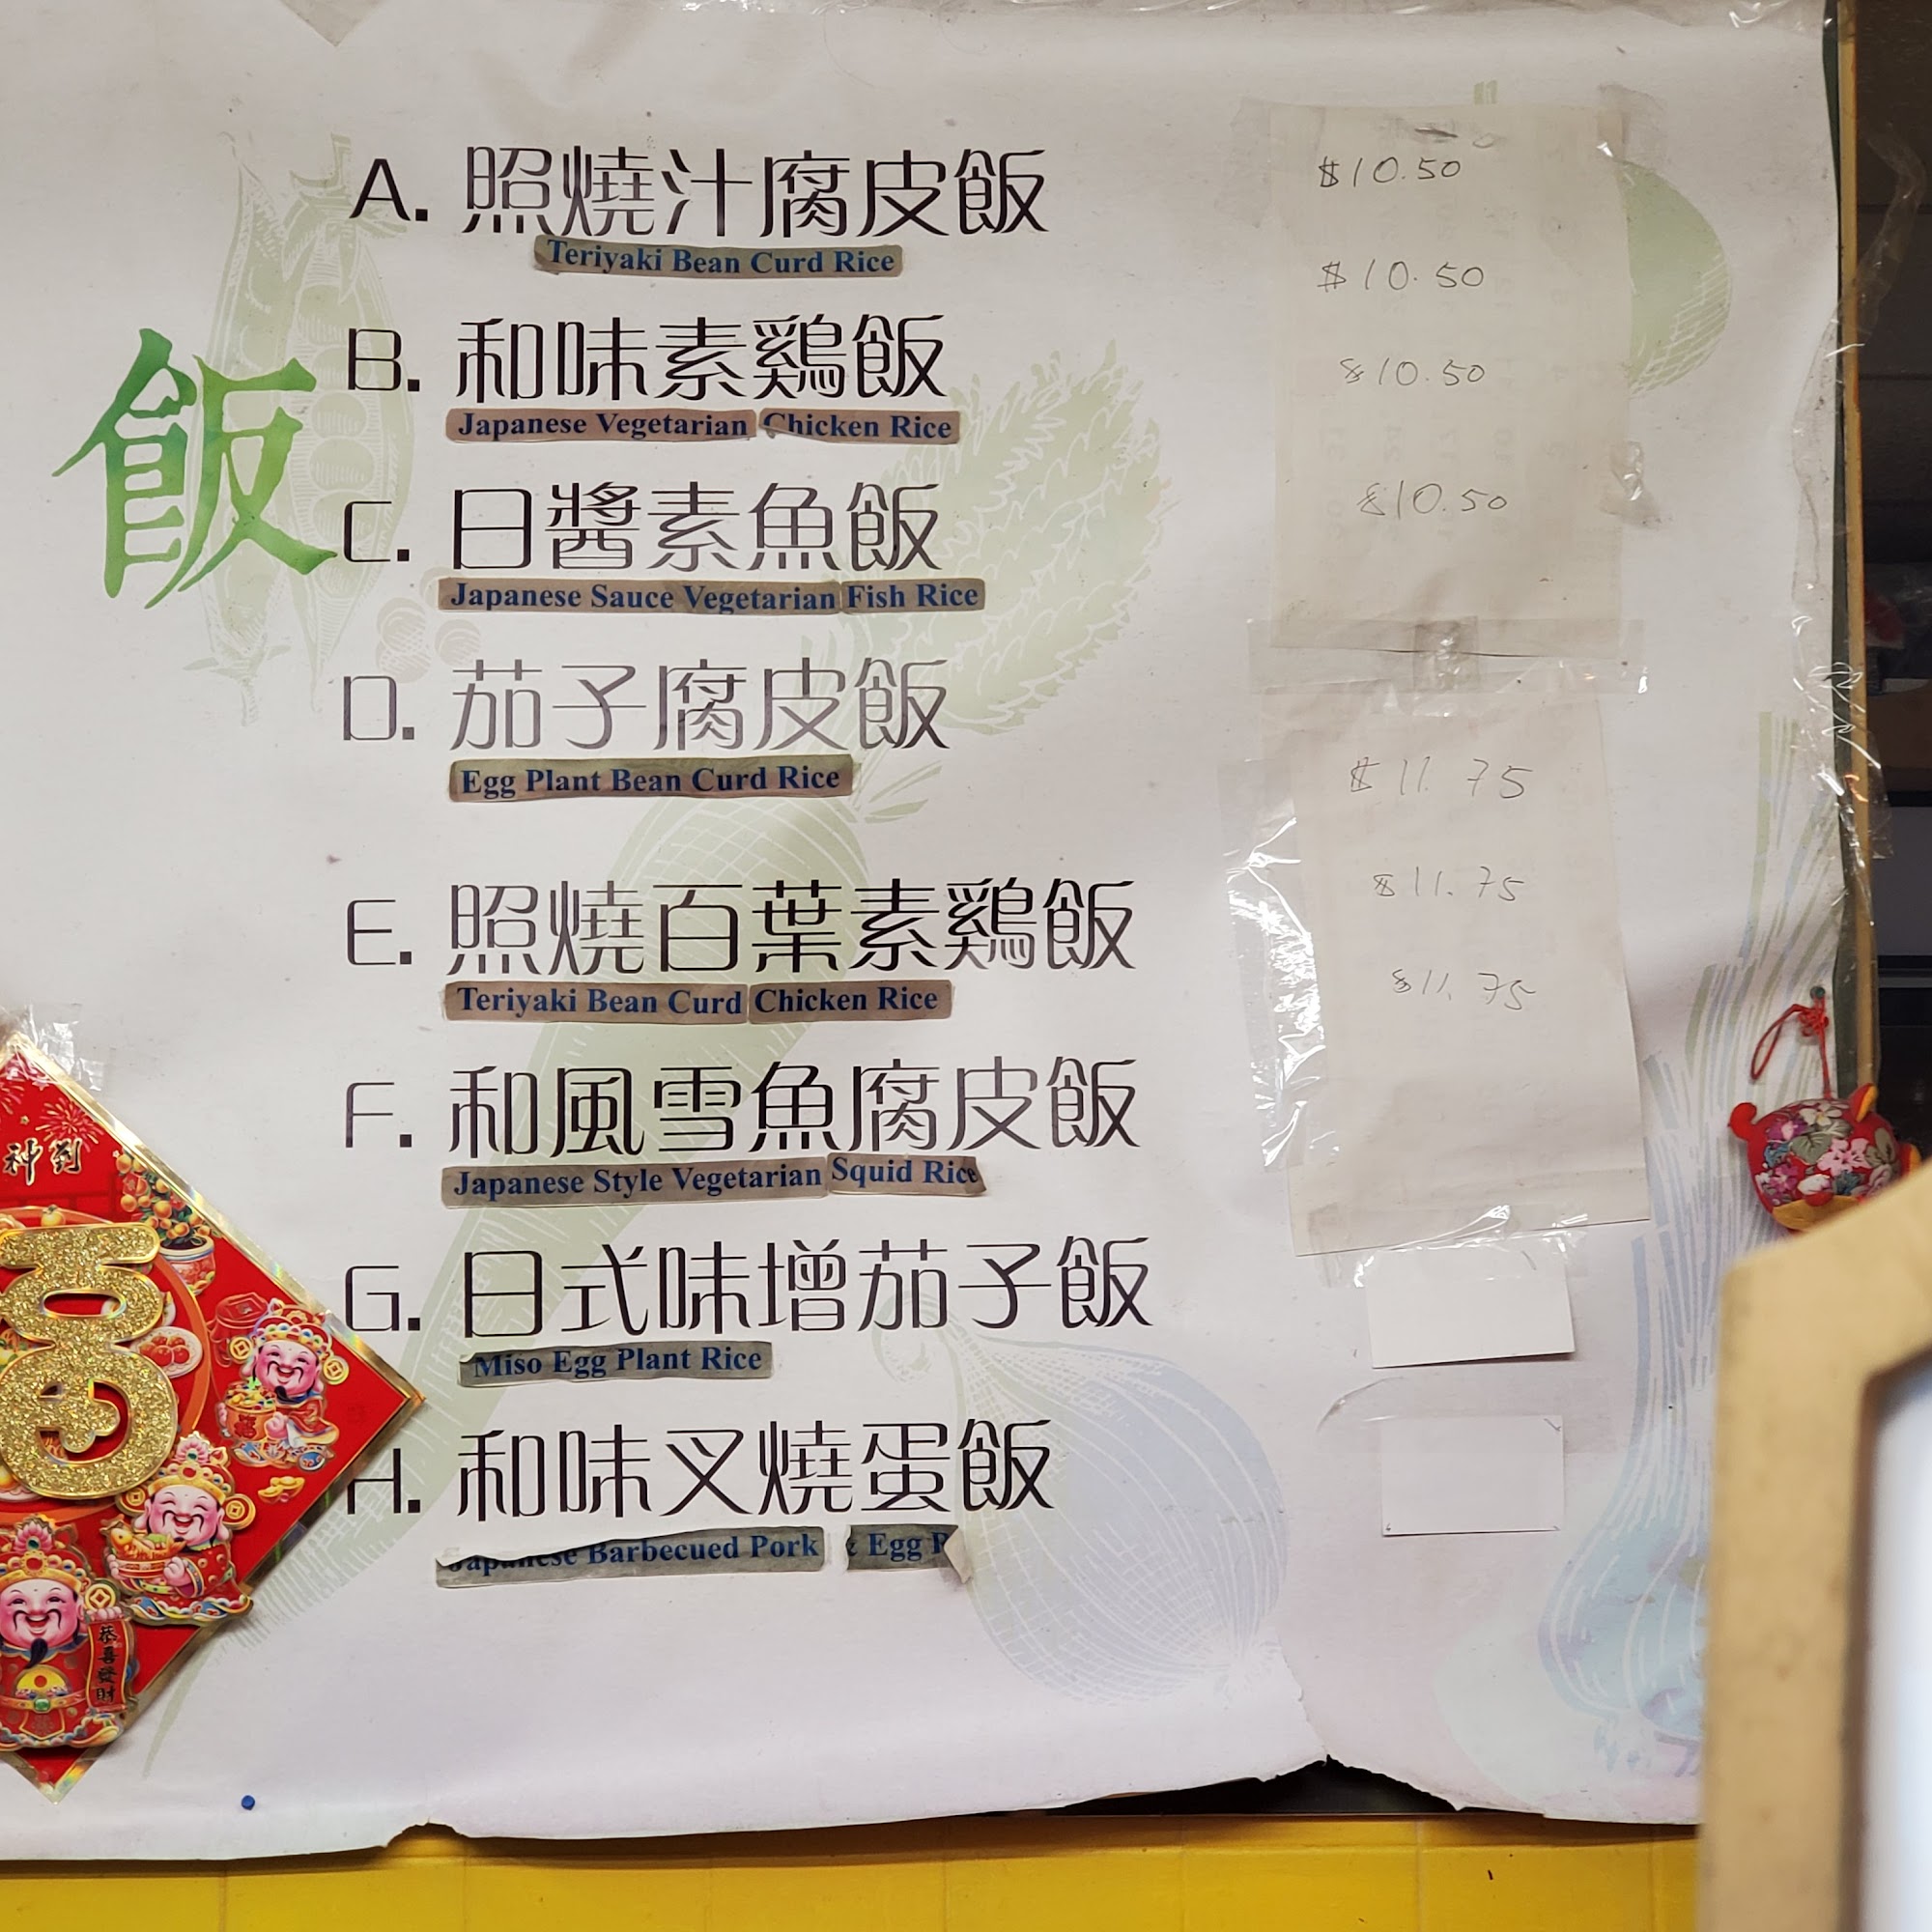 飯
A. 照燒汁腐皮飯 $10.50
Teriyaki Bean Curd Rice
$10.50
B. 和味素鷄飯 $10.50
Japanese Vegetarian Chicken Rice
C. 日醬素魚飯 $10.50
Japanese Sauce Vegetarian Fish Rice
D. 茄子腐皮飯 $11.75
Egg Plant Bean Curd Rice
E. 照燒百葉素鷄飯 $11.75
Teriyaki Bean Curd Chicken Rice
$11.75
F. 和風雪魚腐皮飯
Japanese Style Vegetarian Squid Rice
G. 日式味增茄子飯
Miso Egg Plant Rice
H. 和味叉燒蛋飯
Japanese Barbecued Pork & Egg
神到
恭喜發財